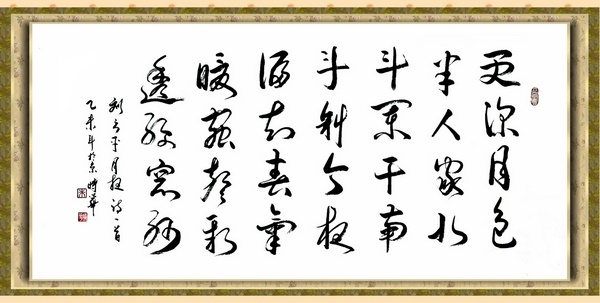 更深月色
半人家北
斗阑干南
斗斜今夜
偏知春氣
暖蟲聲新
透绿窗纱
刘方平月夜诗一首
乙未年於京時華